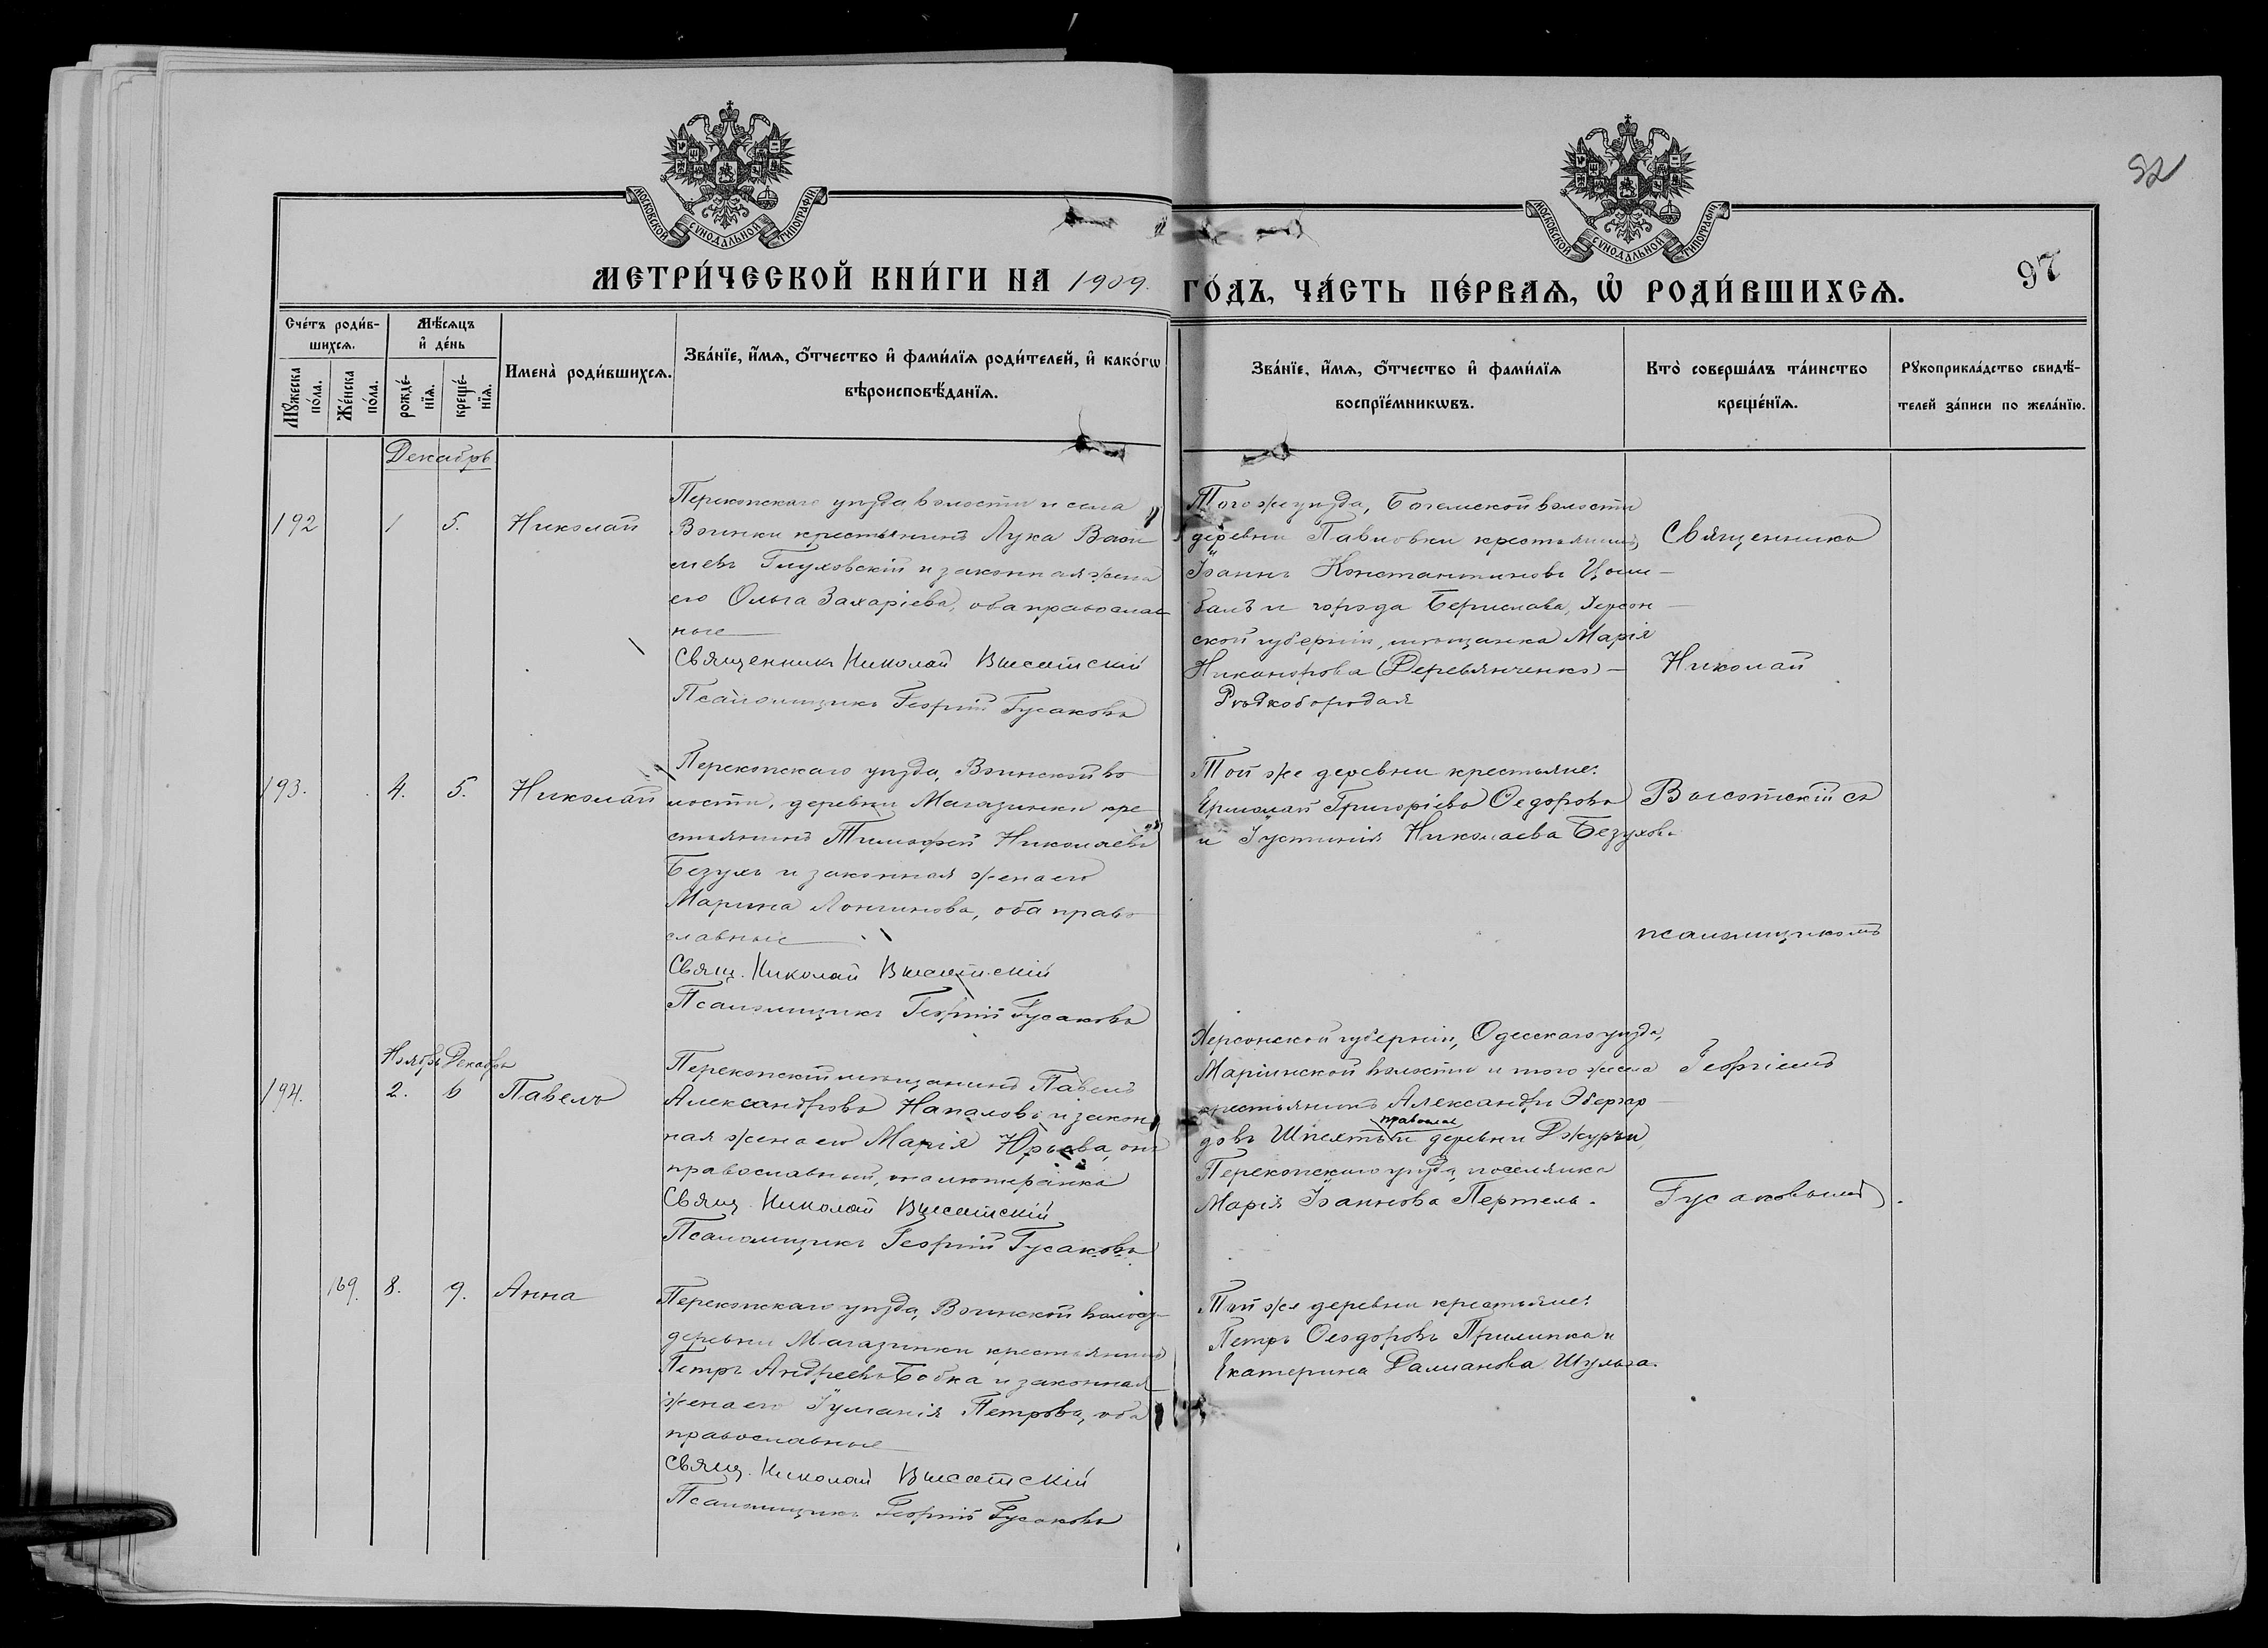 92
97
МОСКОВСКОЙ СѴНОДАЛЬНОЙ ТИПОГРАФІИ
МОСКОВСКОЙ СѴНОДАЛЬНОЙ ТИПОГРАФІИ
МЕТРИ́ЧЕСКОЙ КНИ́ГИ НА 1909.
ГО́ДЪ, ЧА́СТЬ ПЕ́РВАѦ, Ѡ҆ РОДИ́ВШИХСѦ.
Сче́тъ роди́в-
шихсѧ.
Мꙋ́жеска по́ла.
Же́нска по́ла.
Мѣ́сѧцъ
и҆ де́нь
рожде́-
нїѧ.
креще́-
нїѧ.
Имена̀ роди́вшихсѧ.
Зва́нїе, и҆́мѧ, ѻ҆́тчество и҆ фами́лїѧ роди́телей, и҆ како́гѡ
вѣроисповѣ́данїѧ.
Зва́нїе, и҆́мѧ, ѻ҆́тчество и҆ фами́лїѧ
воспрїе́мникѡвъ.
Кто̀ соверша́лъ та́инство
креще́нїѧ.
Рꙋкоприкла́дство свидѣ́-
телей за́писи по жела́нїю.
Декабрь
192
1
5.
Николай
Перекопскаго уѣзда волости и села
Воинки крестьянинъ Лука Васи
льевъ Глуховскій и законная жена
его Ольга Захаріева, оба православ
ные
Священникъ Николай Высотскій
Псаломщикъ Георгій Гусаковъ
Того же уѣзда, Богемской волости
деревни Павловки крестьянинъ
Іоаннъ Константиновъ Цым-
балъ и города Берислава, Херсон-
ской губерніи, мѣщанка Марія
Никанорова (Деревянченко)-
Рѣдкобородая
Священникъ
Николай
193.
4.
5.
Николай
Перекопскаго уѣзда, Воинской во
лости, деревни Магазинки кре
стьянинъ Тимофей Николаевъ
Безухъ и законная жена его
Марина Лонгинова, оба право
славные
Свящ. Николай Высотскій
Псаломщикъ Георгій Гусаковъ
Той же деревни крестьяне:
Ермолай Григоріевъ Ѳедоровъ
и Іустинія Николаева Безухова
Высотскій съ
псаломщикомъ
Ноябрь Декабрь
194.
2.
6
Павелъ
Перекопскій мѣщанинъ Павелъ
Александровъ Напаловъ и закон
ная жена его Марія Юрьева, онъ
православный, она лютеранка
Свящ. Николай Высотскій
Псаломщикъ Георгій Гусаковъ
Херсонской губерніи, Одесскаго уѣзда,
Маріинской волости и того же села
крестьянинъ Александръ Эбергар-
православ
довъ Шпехтъ и деревни Джурчи,
Перекопскаго уѣзда, поселянка
Марія Іоаннова Пертель.
Георгіемъ
Гусаковымъ.
169.
8.
9.
Анна
Перекопскаго уѣзда, Воинской волос-
деревни Магазинки крестьянинъ
Петръ Андреевъ Бобка и законная
жена его Іуліанія Петрова, оба
православные
Свящ. Николай Высотскій
Псаломщикъ Георгій Гусаковъ
Той же деревни крестьяне:
Петръ Ѳеодоровъ Прилипка и
Екатерина Даміанова Шульга.